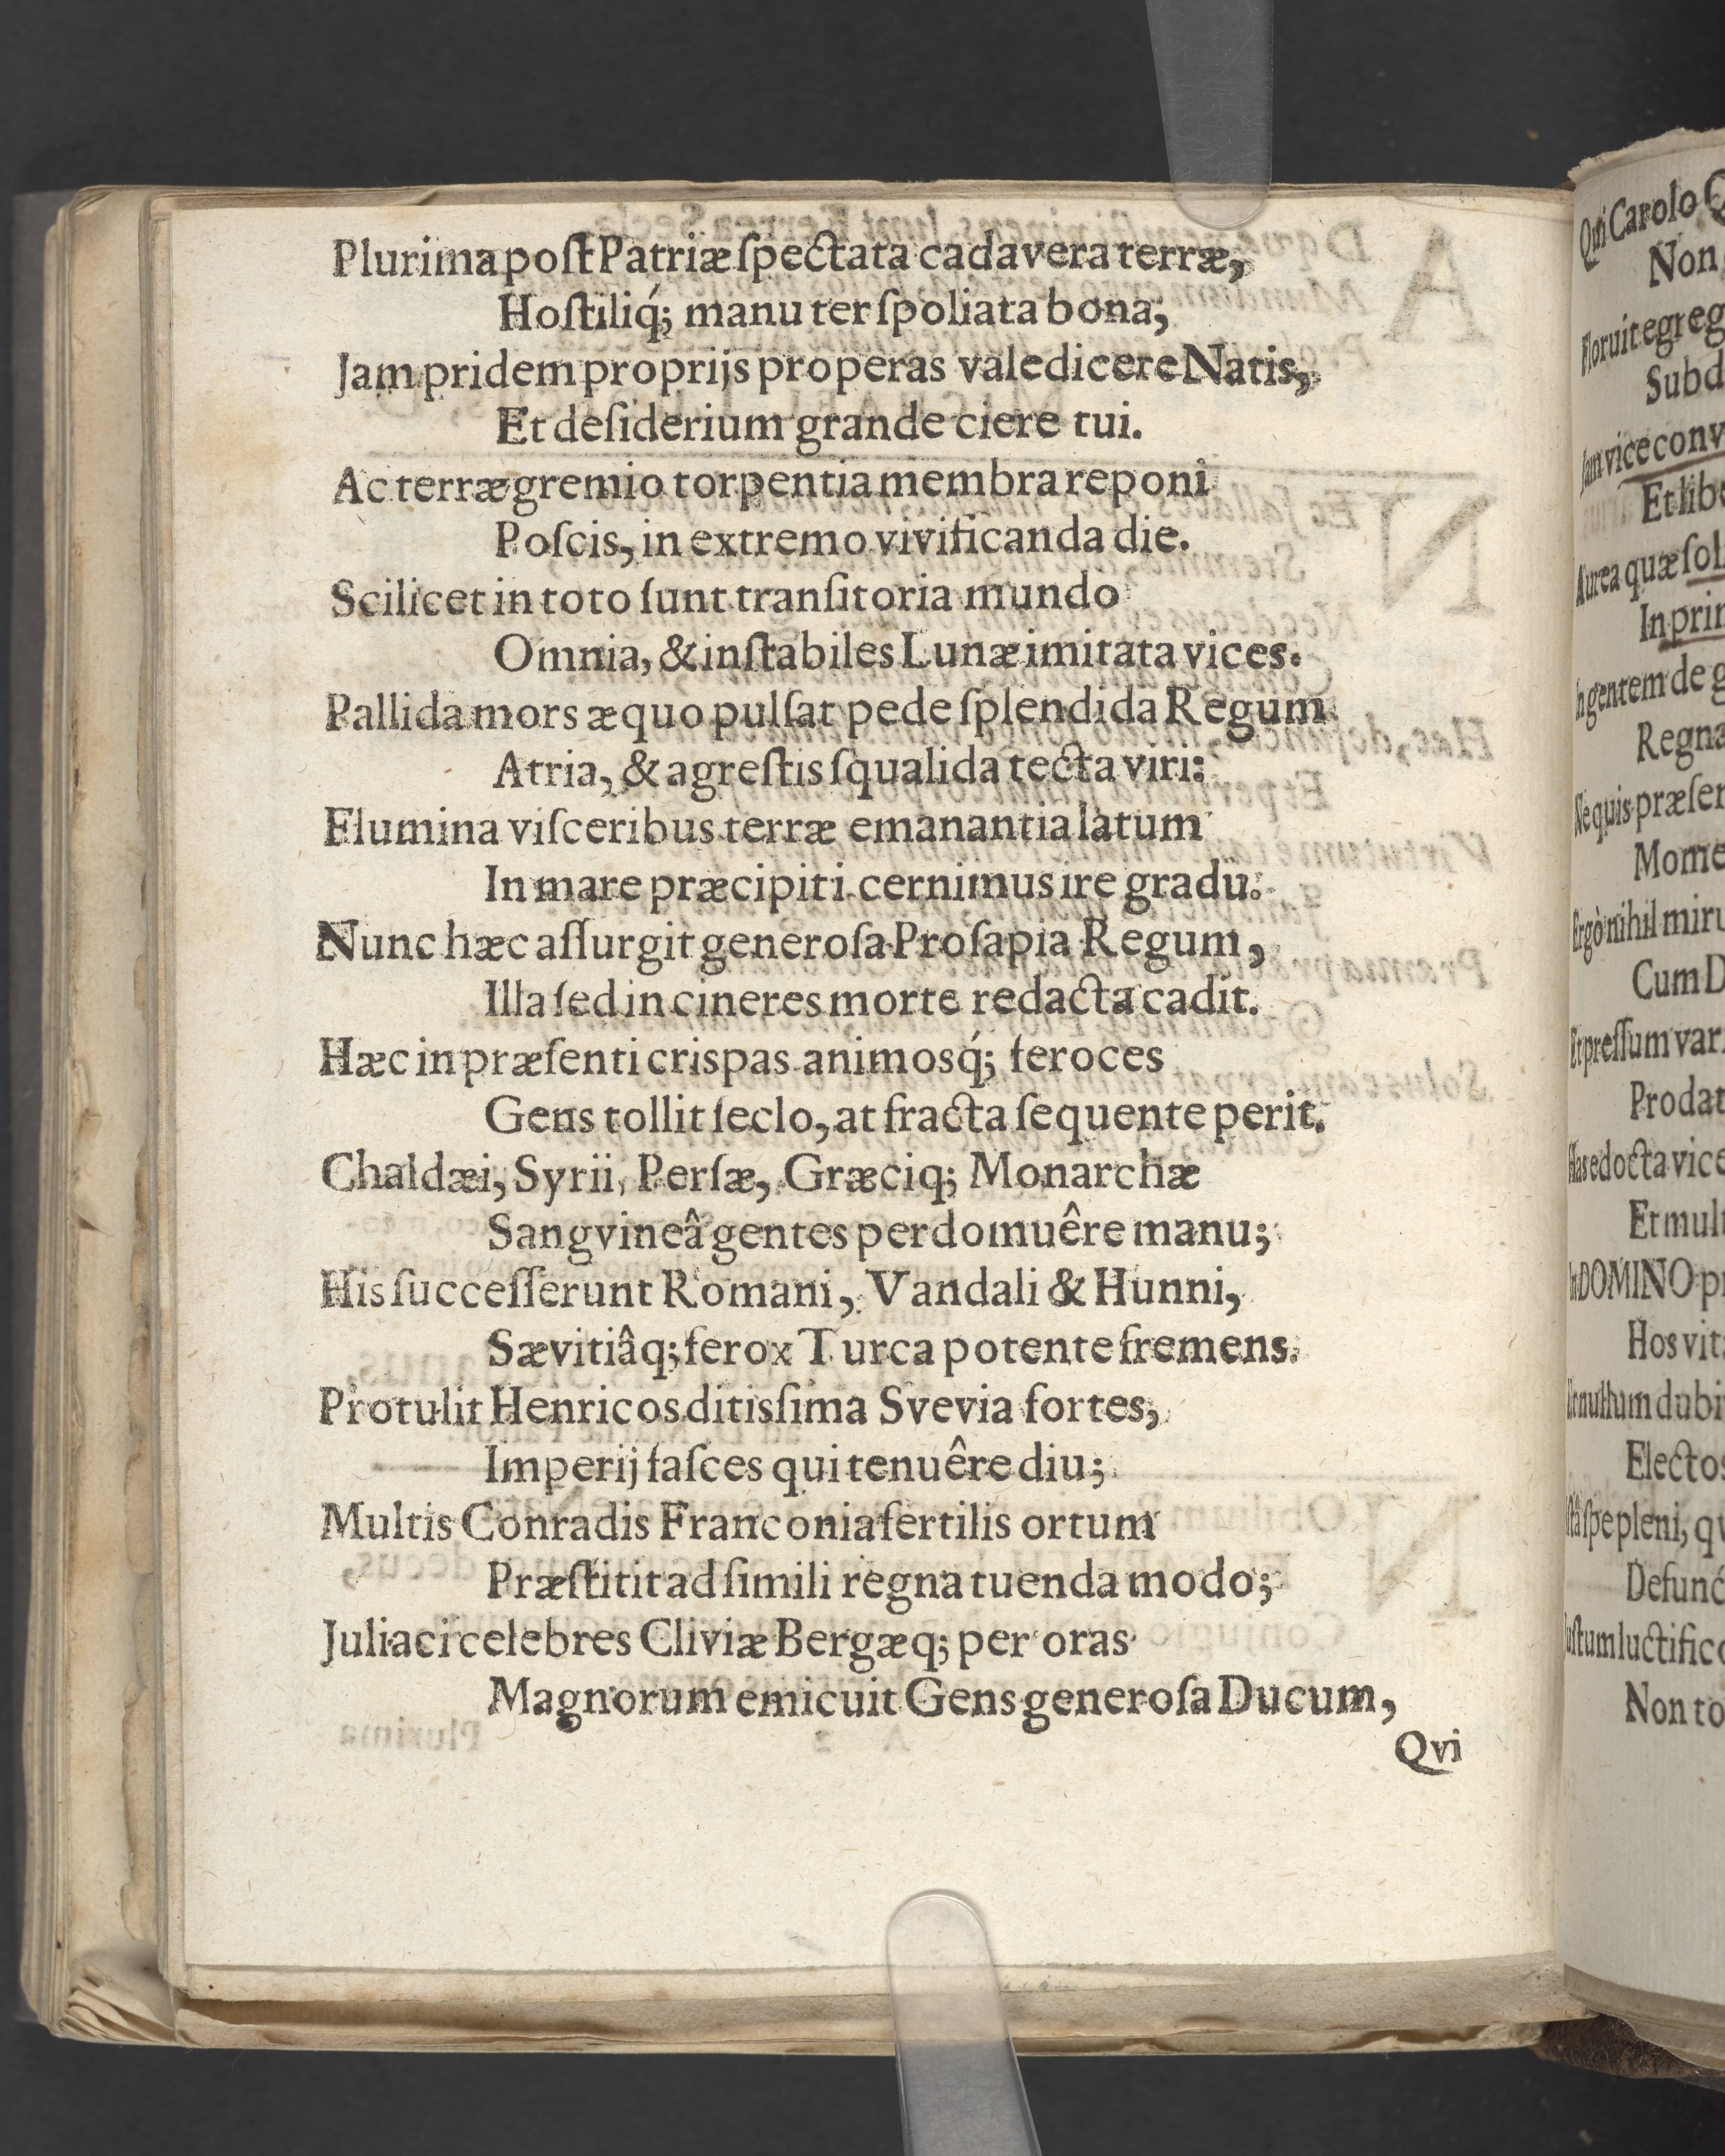 Plurima poſt Patriæ ſpectata cadavera terræ,
Hoſtiliq́; manu ter ſpoliata bona;
Jam pridem proprijs properas valedicere Natis,
Et deſiderium grande ciere tui.
Ac terræ gremio torpentia membra reponi
Poſcis, in extremo vivificanda die.
Scilicet in toto ſunt tranſitoria mundo
Omnia, & inſtabiles Lunæ imitata vices.
Pallida mors æquo pulſat pede ſplendida Regum
Atria, & agreſtis ſqualida tecta viri:
Flumina viſceribus terræ emanantia latum
In mare præcipiti cernimus ire gradu.
Nunc hæc aſſurgit generoſa Proſapia Regum,
Illa ſed in cineres morte redacta cadit.
Hæc in præſenti crispas animosq́; feroces
Gens tollit ſeclo, at fracta ſequente perit.
Chaldæi, Syrii, Perſæ, Græciq; Monarchæ
Sangvineâ gentes perdomuêre manu;
His ſucceſſerunt Romani, Vandali & Hunni,
Sævitiâq; ferox Turca potente fremens.
Protulit Henricos ditisſima Svevia fortes,
Imperij faſces qui tenuêre diu;
Multis Conradis Franconia fertilis ortum
Præſtitit ad ſimili regna tuenda modo;
Juliaci celebres Cliviæ Bergæq; per oras
Magnorum emicuit Gens generoſa Ducum,
Qvi
Qui Carolo
Non
Floruit egreg
Subd
Jam vice conv
Et libe
Aurea quæ ſoli
In prin
Ingentem de g
Regna
Ne quis præſen
Mome
Ergò nihil miru
Cum D
Et preſſum vari
Prodat
Has edocta vice
Et mult
In DOMINO pr
Hos vit
Ut nullum dubi
Electos
ſpe pleni, qv
Defunc
luctifico
Non to